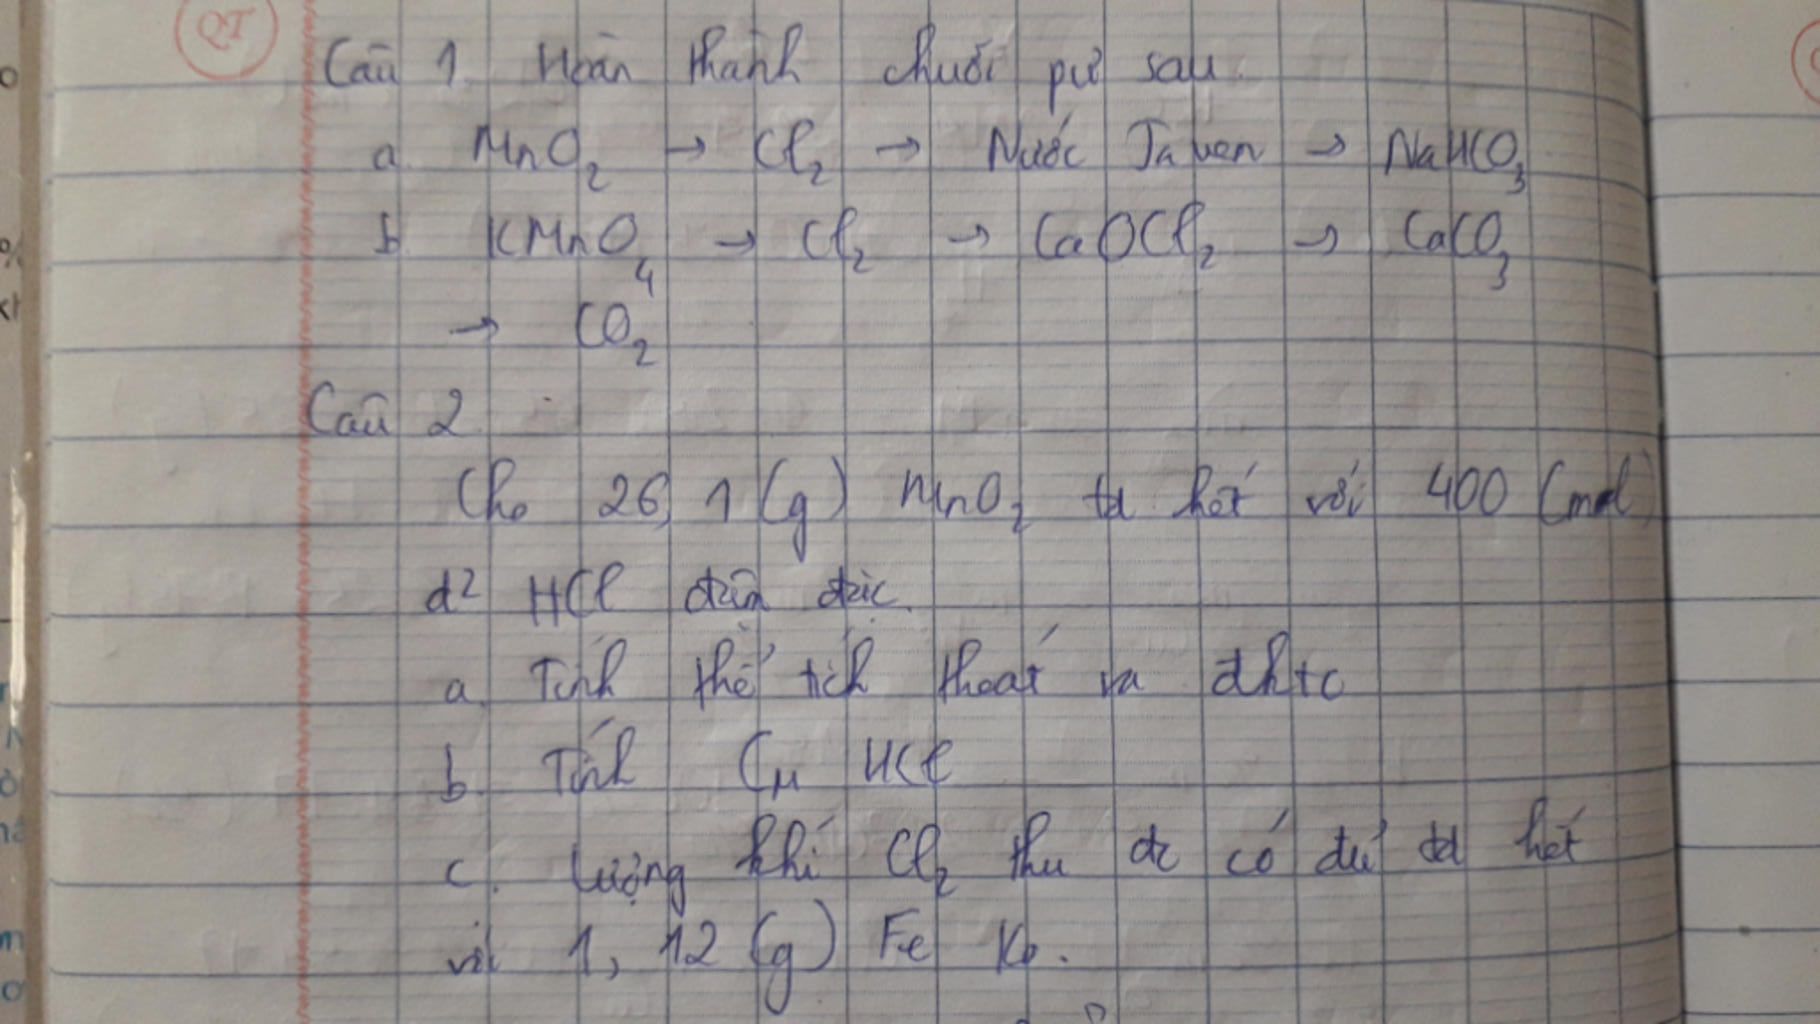 QT
Câu 1. Hoàn thành chuỗi pư sau.
a. MnO₂ → Cl₂ → Nước Javen → NaHCO₃
b. KMnO₄ → Cl₂ → CaOCl₂ → CaCO₃
→ CO₂
Câu 2.
Cho 26,1 (g) MnO₂ td hết với 400 (ml)
d² HCl đậm đặc.
a. Tính thể tích thoát ra đktc
b. Tính CM HCl
c. Lượng khí Cl₂ thu đc có đủ td hết
với 1,12 (g) Fe ko.